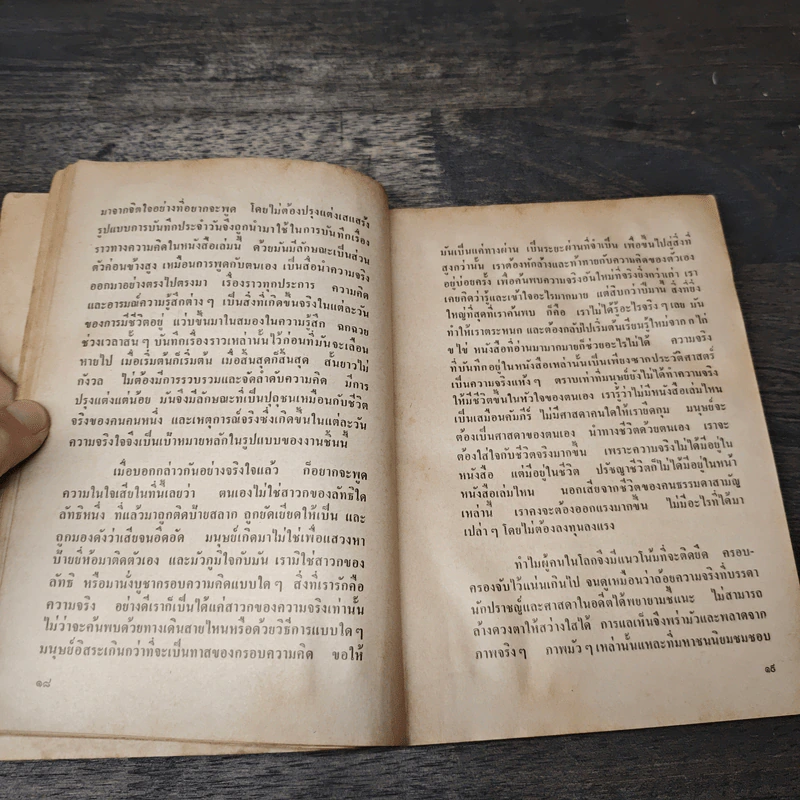 มาจากจิตใจอย่างที่อยากจะพูด โดยไม่ต้องปรุงแต่งเสแสร้ง
รูปแบบการบันทึกประจำวันจึงถูกนำมาใช้ในการบันทึกเรื่อง
ราวทางความคิดในหนังสือเล่มนี้ ด้วยมันมีลักษณะเป็นส่วน
ตัวค่อนข้างสูง เหมือนการพูดกับตนเอง เป็นสื่อนำความจริง
ออกมาอย่างตรงไปตรงมา เรื่องราวทุกประการ ความคิด
และอารมณ์ความรู้สึกต่าง ๆ เป็นสิ่งที่เกิดขึ้นจริงในแต่ละวัน
ของการมีชีวิตอยู่ แว่บขึ้นมาในสมองในความรู้สึก ฉกฉวย
ช่วงเวลาสั้น ๆ บันทึกเรื่องราวเหล่านั้นไว้ก่อนที่มันจะเลือน
หายไป เมื่อเริ่มต้นก็เริ่มต้น เมื่อสิ้นสุดก็สิ้นสุด สั้นยาวไม่
กังวล ไม่ต้องมีการรวบรวมและจัดลำดับความคิด มีการ
ปรุงแต่งแต่น้อย มันจึงมีลักษณะที่เป็นปุถุชนเหมือนกับชีวิต
จริงของคนคนหนึ่ง และเหตุการณ์จริงซึ่งเกิดขึ้นในแต่ละวัน
ความจริงใจจึงเป็นเป้าหมายหลักในรูปแบบของงานชิ้นนี้
เมื่อบอกกล่าวกันอย่างจริงใจแล้ว ก็อยากจะพูด
ความในใจเสียในที่นี้เลยว่า ตนเองไม่ใช่สาวกของลัทธิใด
ลัทธิหนึ่ง ที่แล้วมาถูกติดป้ายสลาก ถูกยัดเยียดให้เป็น และ
ถูกมองดังว่าเสียจนอึดอัด มนุษย์เกิดมาไม่ใช่เพื่อแสวงหา
ป้ายยี่ห้อมาติดตัวเอง และมัวภูมิใจกับมัน เรามิใช่สาวกของ
ลัทธิ หรือมานั่งบูชากรอบความคิดแบบใด ๆ สิ่งที่เรารักคือ
ความจริง อย่างดีเราก็เป็นได้แค่สาวกของความจริงเท่านั้น
ไม่ว่าจะค้นพบด้วยทางเดินสายไหนหรือด้วยวิธีการแบบใด ๆ
มนุษย์อิสระเกินกว่าที่จะเป็นทาสของกรอบความคิด ขอให้
๑๘
มันเป็นแค่ทางผ่าน เป็นระยะผ่านที่จำเป็น เพื่อขึ้นไปสู่สิ่งที่
สูงกว่านั้น เราต้องหักล้างและท้าทายกับความคิดของตัวเอง
อยู่บ่อยครั้ง เพื่อค้นพบความจริงอันใหม่ที่จริงยิ่งกว่าเก่า เรา
เคยคิดว่ารู้และเข้าใจอะไรมากมาย แต่สิบกว่าปีมานี้ สิ่งที่ยิ่ง
ใหญ่ที่สุดที่เราค้นพบ ก็คือ เราไม่ได้รู้อะไรจริง ๆ เลย มัน
ทำให้เราตระหนก และต้องกลับไปเริ่มต้นเรียนรู้ใหม่จาก ก ไก่
ข ไข่ หนังสือที่อ่านมามากมายก็ช่วยอะไรไม่ได้ ความจริง
ที่บันทึกอยู่ในหนังสือเหล่านั้นเป็นเพียงซากประวัติศาสตร์
เป็นความจริงแห้ง ๆ ตราบเท่าที่มนุษย์ยังไม่ได้ทำความจริง
ให้มีชีวิตขึ้นในหัวใจของตนเอง เรารู้ว่าไม่มีหนังสือเล่มไหน
เป็นเสมือนคัมภีร์ ไม่มีศาสดาคนใดให้เรายึดกุม มนุษย์จะ
ต้องเป็นศาสดาของตนเอง นำทางชีวิตด้วยตนเอง เราจะ
ต้องใส่ใจกับชีวิตจริงมากขึ้น เพราะความจริงไม่ได้มีอยู่ใน
หนังสือ แต่มีอยู่ในชีวิต ปรัชญาชีวิตก็ไม่ได้มีอยู่ในหน้า
หนังสือเล่มไหน นอกเสียจากชีวิตของคนธรรมดาสามัญ
เหล่านี้ เราคงจะต้องออกแรงมากขึ้น ไม่มีอะไรที่ได้มา
เปล่า ๆ โดยไม่ต้องลงทุนลงแรง
ทำไมผู้คนในโลกจึงมีแนวโน้มที่จะติดยึด ครอบ-
ครองจับไว้แน่นเกินไป จนดูเหมือนว่าล้อยความจริงที่บรรดา
นักปราชญ์และศาสดาในอดีตได้พยายามชี้แนะ ไม่สามารถ
ล้างดวงตาให้สว่างใสได้ การแลเห็นจึงพร่ามัวและพลาดจาก
ภาพจริง ๆ ภาพมัว ๆ เหล่านั้นแหละที่มหาชนนิยมชมชอบ
๑๙